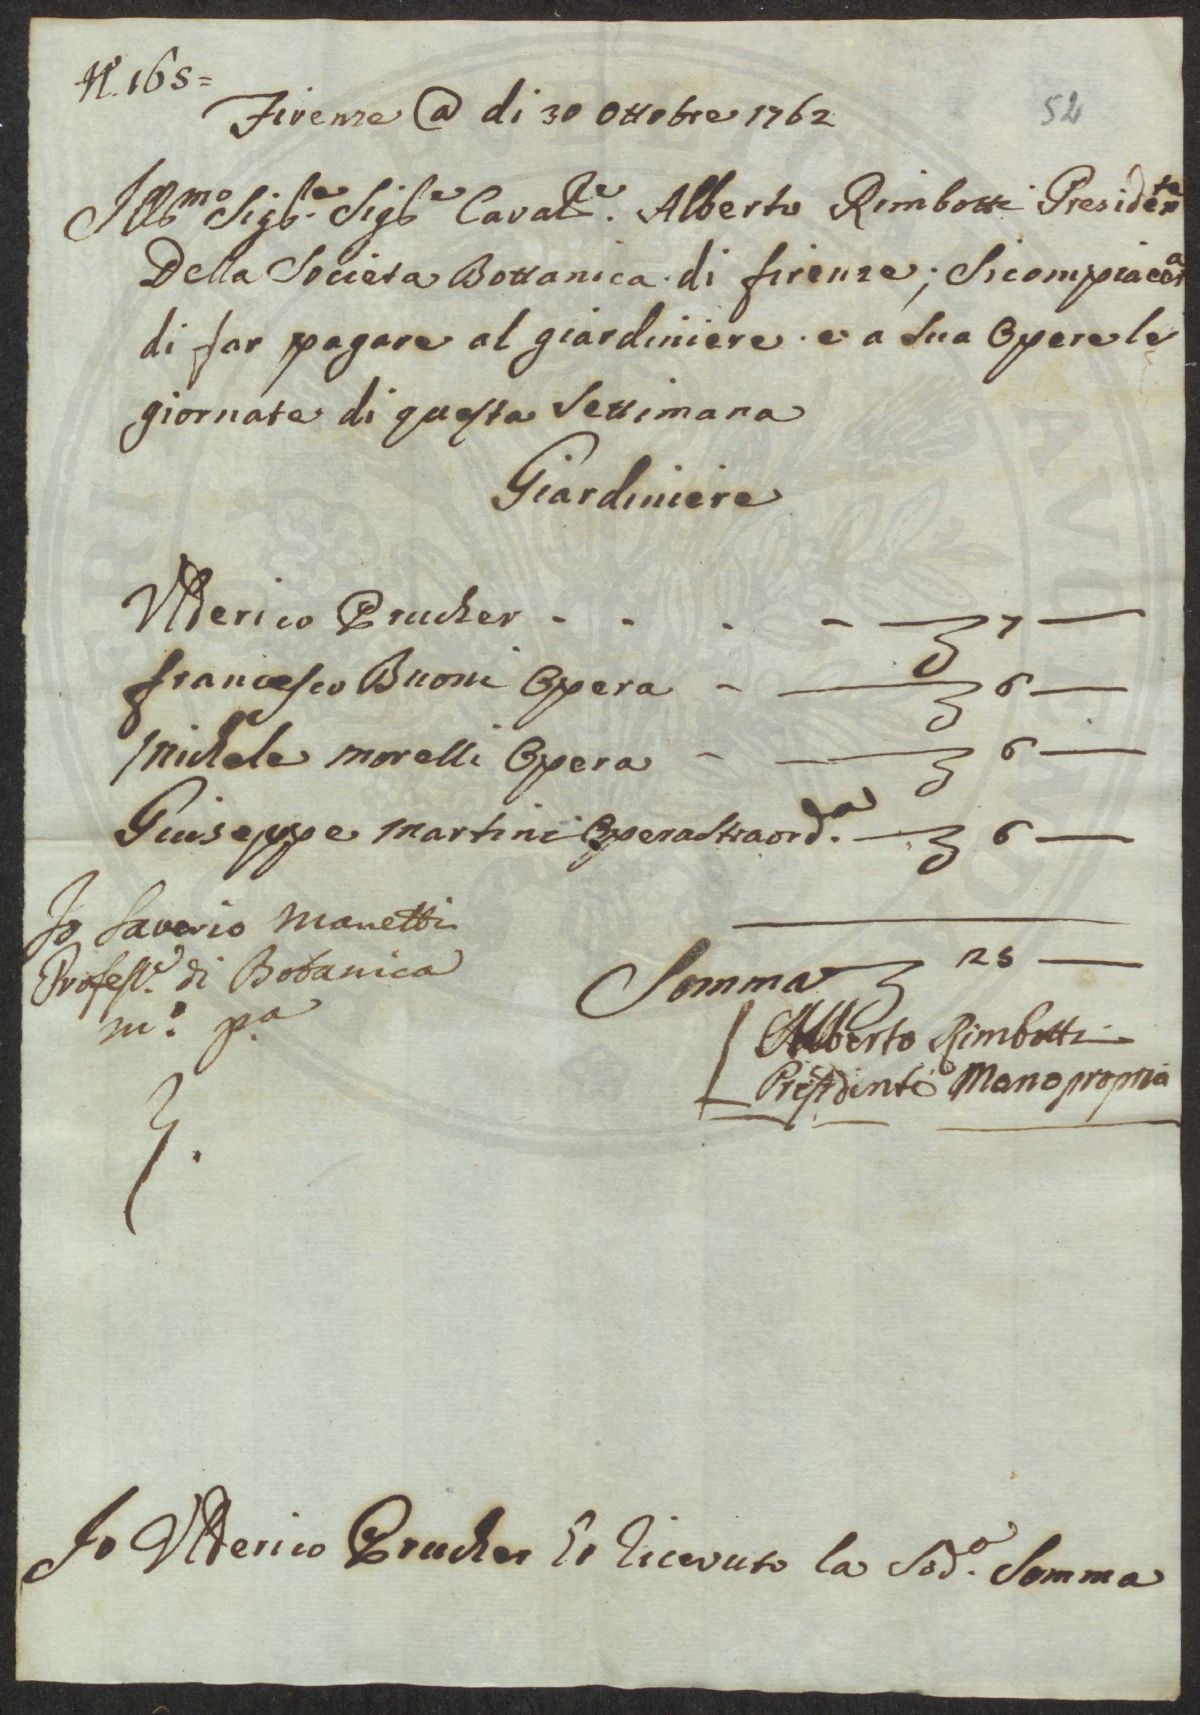 N.º 165=
52
Firenze @ di 30 Ottobre 1762
Ill.mo Sig.re Sig.re Caval.re Alberto Rimbotti Presid.te
Della Societa Bottanica di firenze; Si compiacera
di far pagare al giardiniere e a sua Opere le
giornate di questa Settimana
Giardiniere
Ulderico Prucker - - - - 7 —
francesco Buoni Opera - — 6 —
Michele morelli Opera - — 6 —
Giuseppe Martini Opera Straord.a — 6 —
Somma — 25 —
Io Saverio Manetti
Profess.e di Botanica
m.o p.a
Alberto Rimbotti
Presidente Mano propria
Io Ulderico Prucker ho ricevuto la Sod.a Somma